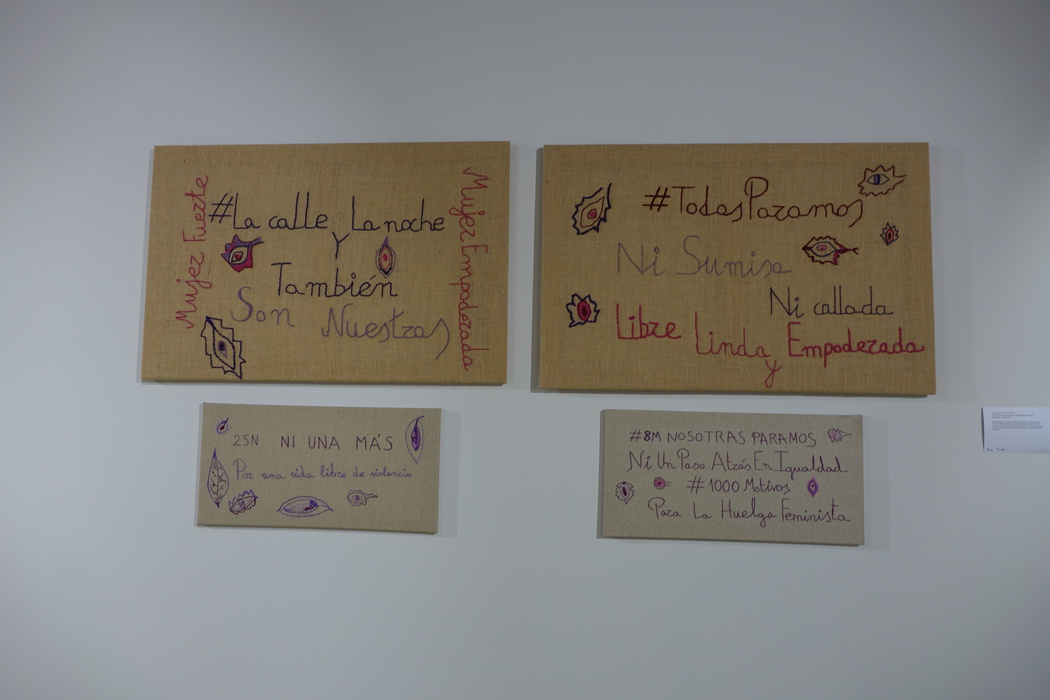 Mujer Fuerte
#La calle La noche
Y
También
Son Nuestras
Mujer Empoderada
#Todas Paramos
Ni Sumisa
Ni callada
Libre Linda y Empoderada
25N NI UNA MÁS
Por una vida libre de violencia
#8M NOSOTRAS PARAMOS
Ni Un Paso Atrás En Igualdad
#1000 Motivos
Para La Huelga Feminista